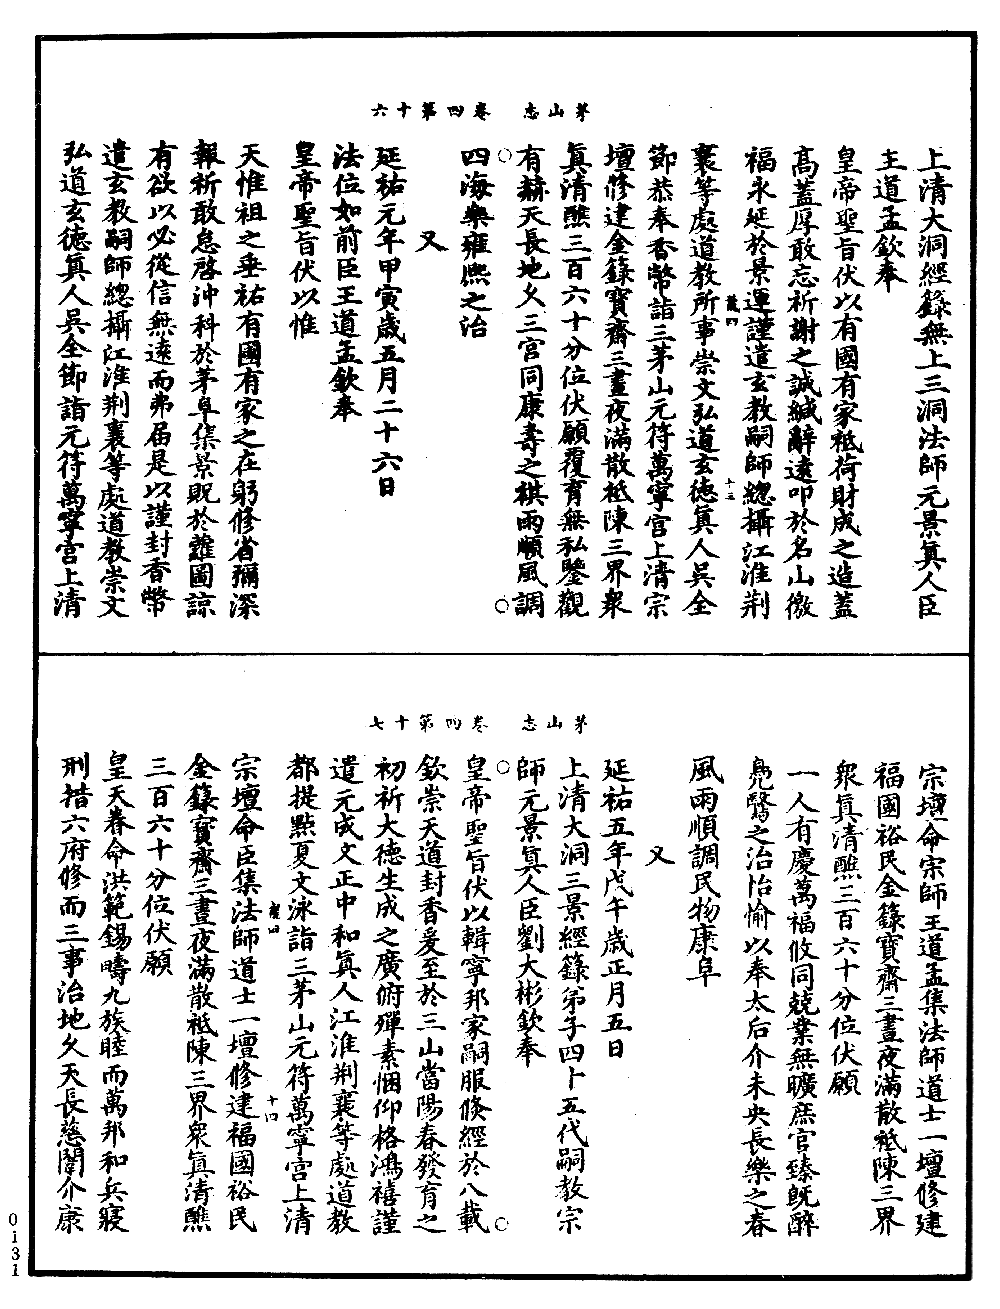 茅山志　卷四第十六
上清大洞經籙無上三洞法師元景真人臣
王道孟欽奉
皇帝聖旨伏以有國有家祗荷財成之造蓋
高蓋厚敢忘祈謝之誠緘辭遠叩於名山徼
福永延於景運謹遣玄教嗣師總攝江淮荊
襄等處道教所事崇文弘道玄德真人吳全
節恭奉香幣詣三茅山元符萬寧宮上清宗
壇修建金籙寶齋三晝夜滿散祗陳三界眾
真清醮三百六十分位伏願覆育無私鑒觀
有赫天長地久三宮同康壽之祺雨順風調
四海樂雍熙之治
又
延祐元年甲寅歲五月二十六日
法位如前臣王道孟欽奉
皇帝聖旨伏以惟
天惟祖之垂祐有國有家之在躬修省彌深
報祈敢怠啓沖科於茅阜集景貺於蘿圖諒
有欲以必從信無遠而弗届是以謹封香幣
遣玄教嗣師總攝江淮荊襄等處道教崇文
弘道玄德真人吳全節詣元符萬寧宮上清
茅山志　卷四第十七
宗壇命宗師王道孟集法師道士一壇修建
福國裕民金籙寶齋三晝夜滿散祗陳三界
眾真清醮三百六十分位伏願
一人有慶萬福攸同兢業無曠庶官臻既醉
鳧鷖之治怡愉以奉太后介未央長樂之春
風雨順調民物康阜
又
延祐五年戊午歲正月五日
上清大洞三景經籙弟子四十五代嗣教宗
師元景真人臣劉大彬欽奉
皇帝聖旨伏以輯寧邦家嗣服倏經於八載
欽崇天道封香爰至於三山當陽春發育之
初祈大德生成之廣俯殫素悃仰格鴻禧謹
遣元成文正中和真人江淮荊襄等處道教
都提點夏文泳詣三茅山元符萬寧宮上清
宗壇命臣集法師道士一壇修建福國裕民
金籙寶齋三晝夜滿散祗陳三界眾真清醮
三百六十分位伏願
皇天眷命洪範錫疇九族睦而萬邦和兵寢
刑措六府修而三事治地久天長慈闈介康
0131